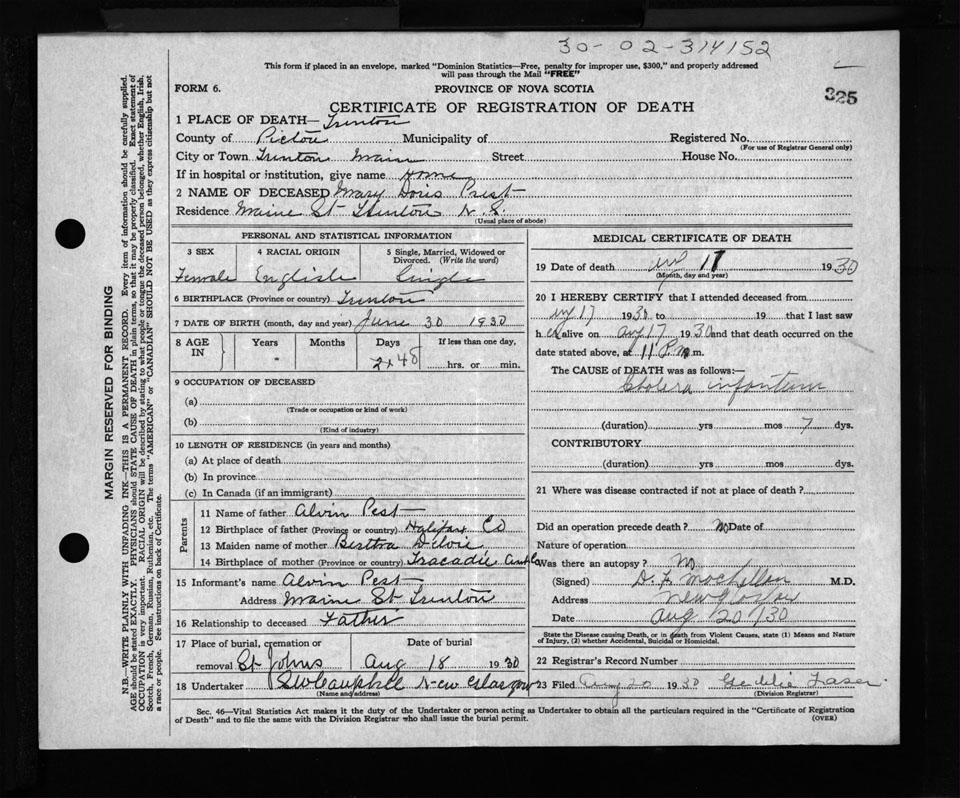 30-02-314152
This form if placed in an envelope, marked "Dominion Statistics—Free, penalty for improper use, $300," and properly addressed
will pass through the Mail "FREE"
FORM 6.
PROVINCE OF NOVA SCOTIA
325
CERTIFICATE OF REGISTRATION OF DEATH
1 PLACE OF DEATH— Trenton
County of Pictou Municipality of Registered No.
(For use of Registrar General only)
City or Town Trenton Main Street House No.
If in hospital or institution, give name Home
2 NAME OF DECEASED Mary Doris Prest
Residence Maine St Trenton N.S.
(Usual place of abode)
PERSONAL AND STATISTICAL INFORMATION
3 SEX 4 RACIAL ORIGIN 5 Single, Married, Widowed or
Divorced. (Write the word)
Female English Single
6 BIRTHPLACE (Province or country) Trenton
7 DATE OF BIRTH (month, day and year) June 30 1930
8 AGE IN Years Months Days If less than one day,
48 hrs. or min.
9 OCCUPATION OF DECEASED
(a)
(Trade or occupation or kind of work)
(b)
(Kind of industry)
10 LENGTH OF RESIDENCE (in years and months)
(a) At place of death
(b) In province
(c) In Canada (if an immigrant)
Parents
11 Name of father Alvin Pest
12 Birthplace of father (Province or country) Halifax Co
13 Maiden name of mother Bertha
14 Birthplace of mother (Province or country) Tracadie
15 Informant's name Alvin Pest
Address Maine St Trenton
16 Relationship to deceased Father
17 Place of burial, cremation or Date of burial
removal St Johns Aug 18 1930
18 Undertaker SW Campbell New Glasgow
(Name and address)
MEDICAL CERTIFICATE OF DEATH
19 Date of death 17 1930
(Month, day and year)
20 I HEREBY CERTIFY that I attended deceased from
17 1930 to 19 that I last saw
h er alive on aug 17 1930 and that death occurred on the
date stated above, at 11 P. m.
The CAUSE of DEATH was as follows:—
Cholera infantum
(duration) yrs mos 7 dys.
CONTRIBUTORY
(duration) yrs mos dys.
21 Where was disease contracted if not at place of death?
Did an operation precede death? No Date of
Nature of operation
Was there an autopsy? No
(Signed) D. F. M.D.
Address New Glasgow
Date Aug 20/30
State the Disease causing Death, or in death from Violent Causes, state (1) Means and Nature
of Injury, (2) whether Accidental, Suicidal or Homicidal.
22 Registrar's Record Number
23 Filed Aug 20 1930 Geddie Fraser
(Division Registrar)
Sec. 46—Vital Statistics Act makes it the duty of the Undertaker or person acting as Undertaker to obtain all the particulars required in the "Certificate of Registration
of Death" and to file the same with the Division Registrar who shall issue the burial permit.
(OVER)
MARGIN RESERVED FOR BINDING
N.B.—WRITE PLAINLY WITH UNFADING INK—THIS IS A PERMANENT RECORD. Every item of information should be carefully supplied.
AGE should be stated EXACTLY. PHYSICIANS should STATE CAUSE OF DEATH in plain terms, so that it may be properly classified. Exact statement of
OCCUPATION is very important. RACIAL ORIGIN will be described by stating to what people or tongue the deceased person belonged, whether English, Irish,
Scotch, French, German, Russian, Ruthenian, etc. The terms "AMERICAN" or "CANADIAN" SHOULD NOT BE USED as they express citizenship but not
a race or people. See instructions on back of Certificate.